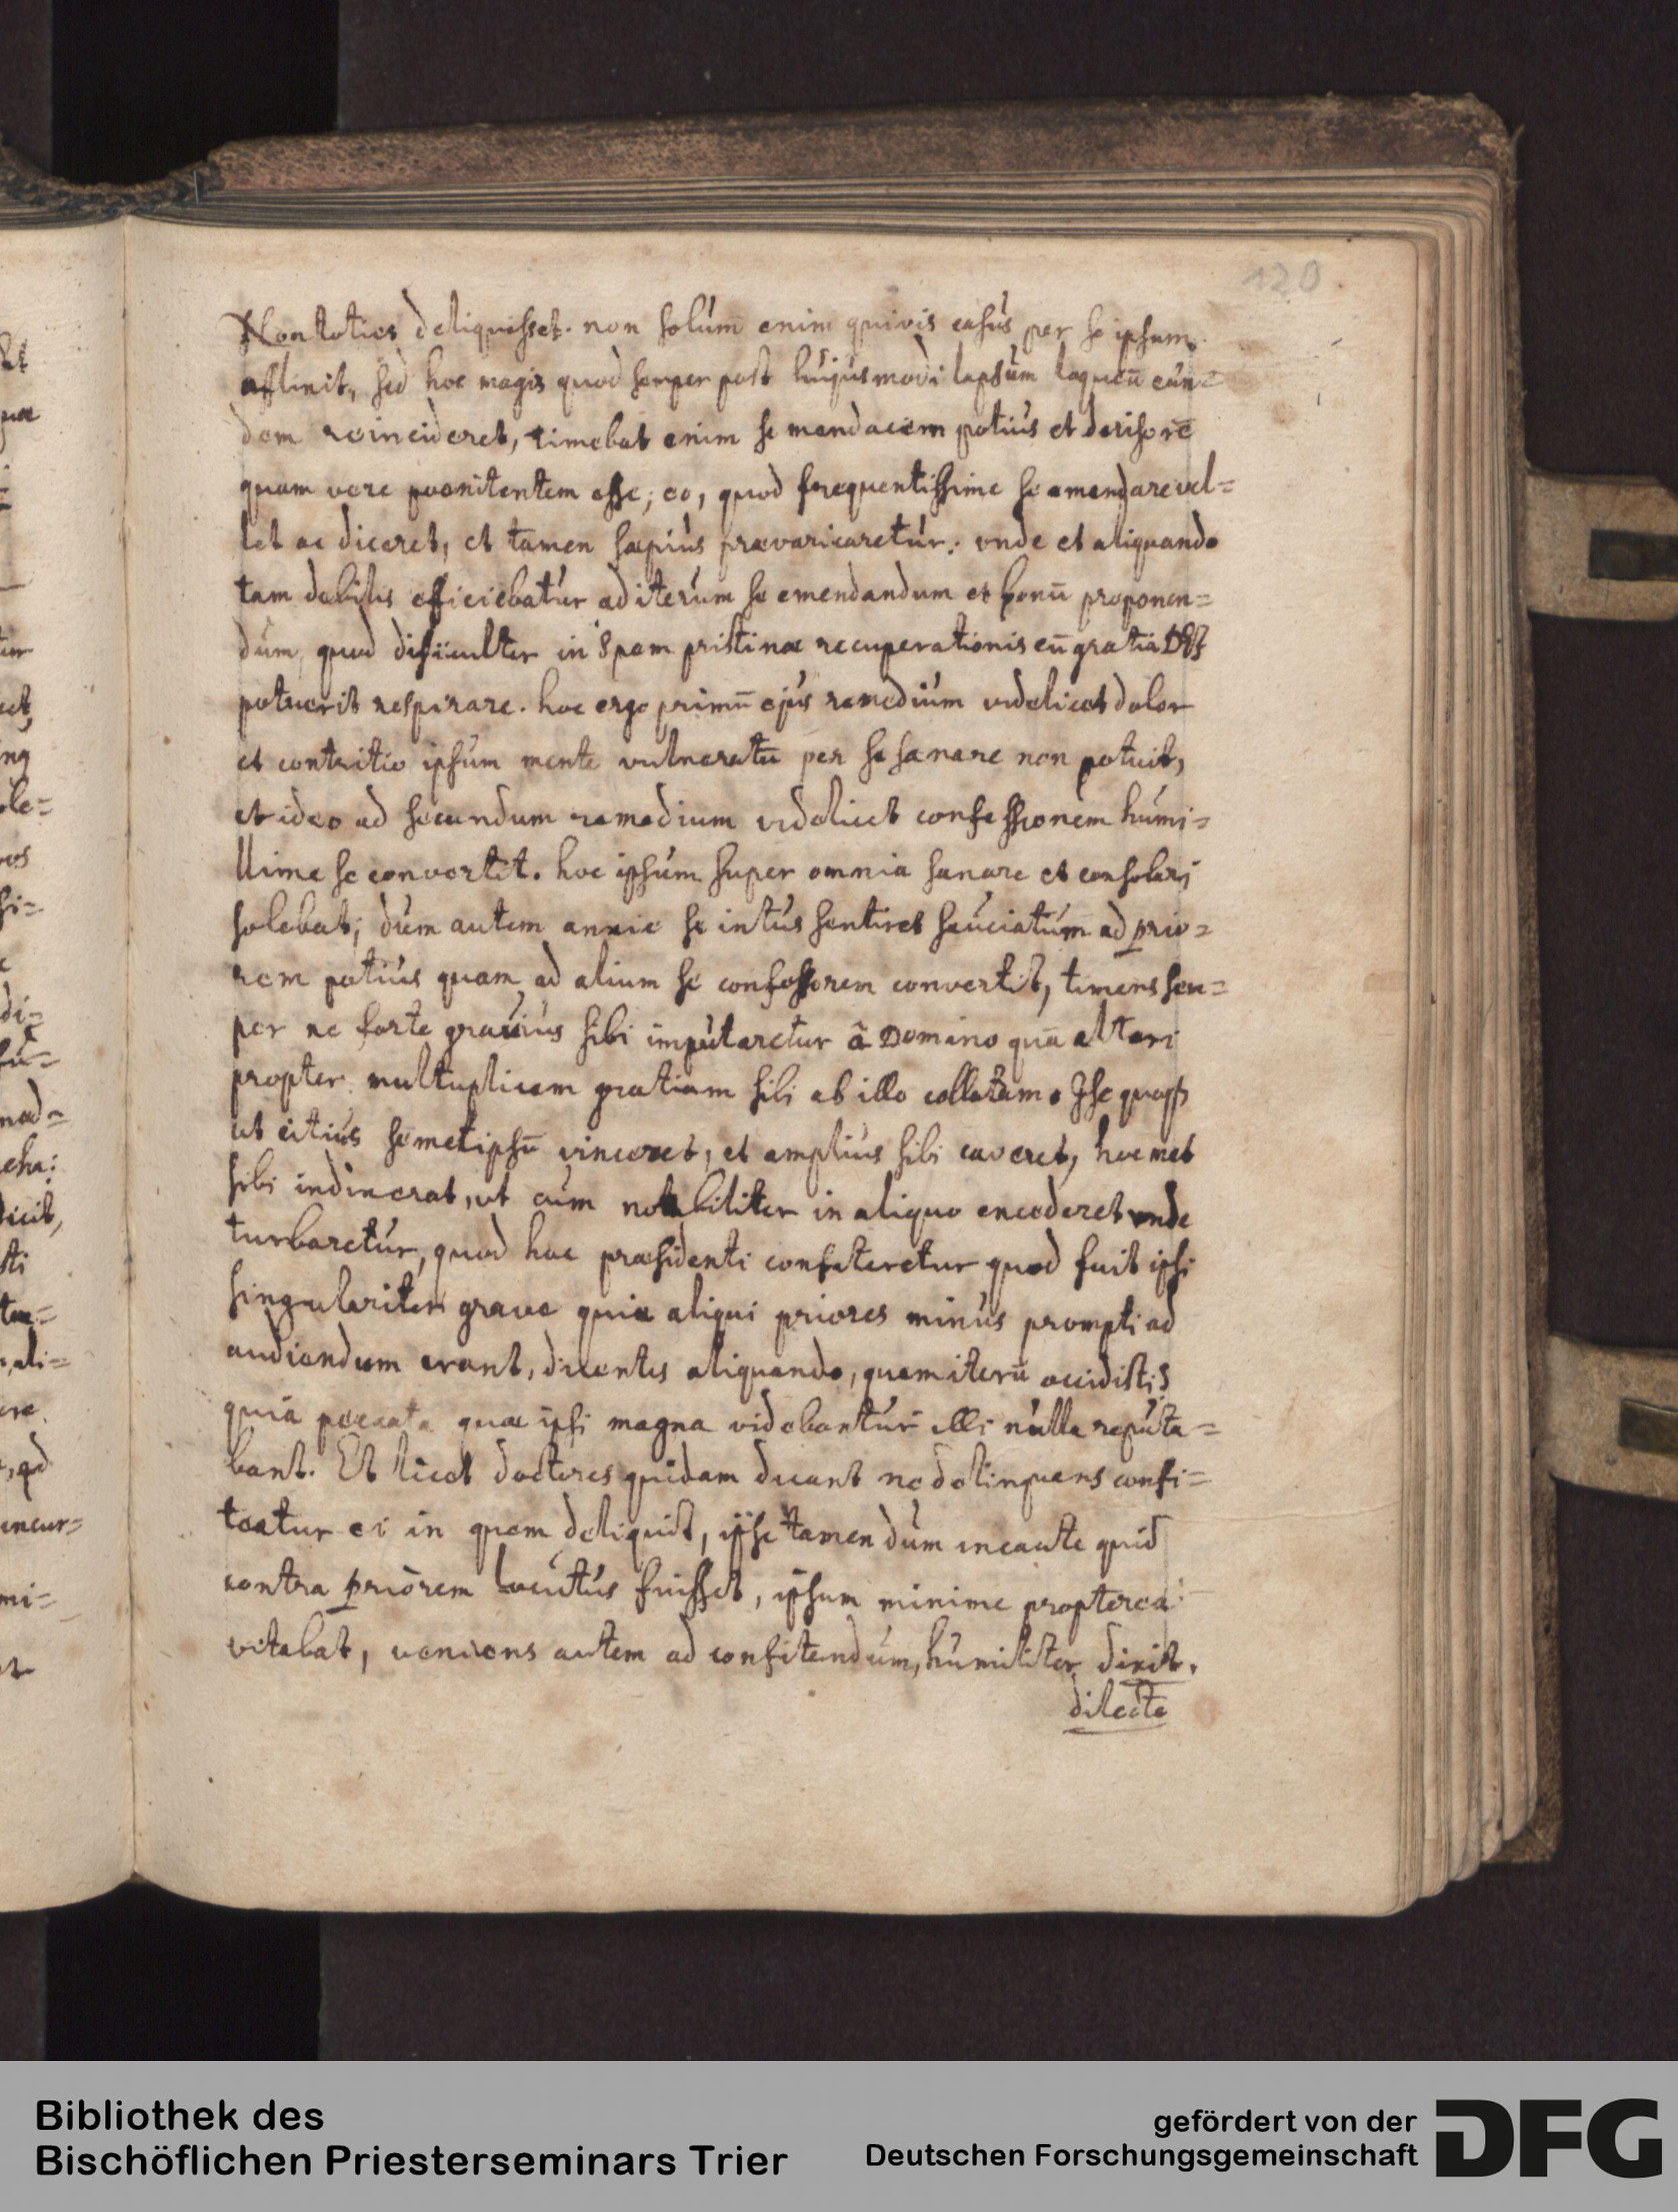 120
Non toties deliquisset. non solum̄ enim quivis casus per se ipsum
afflixit, sed hoc magis quod semper post hujusmodi lapsum laqueū eun=
dem reincideret, timebat enim se mendacem potius et derisorē
quam vere poenitentem esse; eo, quod frequentissime se emendare vel=
let ac diceret, et tamen saepius praevaricaretur: unde et aliquando
tam debilis efficiebatur ad iterum se emendandum et bonū proponen=
dum, quod dificulter in spem pristinae recuperationis cū gratia
potuerit respirare. hoc ergo primū ejus remedium videlicet dolor
et contritio ipsum mente vulneratū per se sanare non potuit,
et ideo ad secundum remedium videlicet confessionem humi=
llime se convertit. hoc ipsum super omnia sanare et consolari
solebat; dum autem anxie se intus sentiret sauciatum ad prio=
rem potius quam ad alium se confessorem convertit, timens sem=
per ne forte gravius sibi imputaretur â Domino quā alteri
propter multuplicem gratiam sibi ab illo collatam. Ipse
ut citius semetipsū vinceret, et amplius sibi caveret, hoc met
sibi indixerat, ut cum notabiliter in aliquo excederet unde
turbaretur, quod hoc praesidenti confiteretur quod fuit ipsi
singulariter grave quia aliqui priores minus prompti ad
audiendum erant, dicentes aliquando, quem iterū occidistis
quia peccata quae ipsi magna videbantur illi nulla reputa=
bant. Et licet doctores quidam dicant ne delinquens confi=
teatur ei in quem deliquit, ipse tamen dum incaute quid
contra priorem locutus fuisset, ipsum minime propterea
vitabat, veniens autem ad confitendum, humiliter dixit.
dilecte
Bibliothek des
Bischöflichen Priesterseminars Trier
gefördert von der
Deutschen Forschungsgemeinschaft
DFG